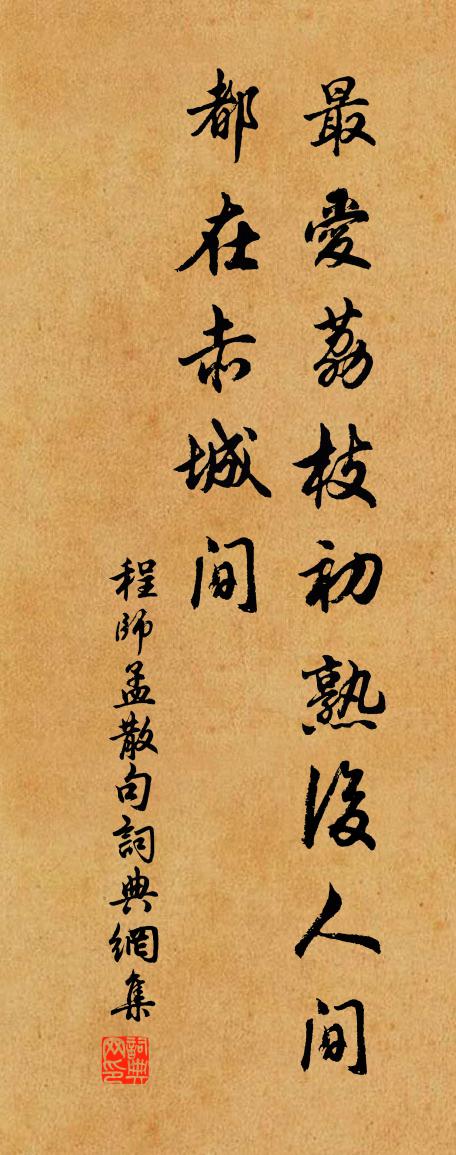 最愛荔枝初熟後人間
都在赤城間
程師孟散句詞典網集
詞典網印